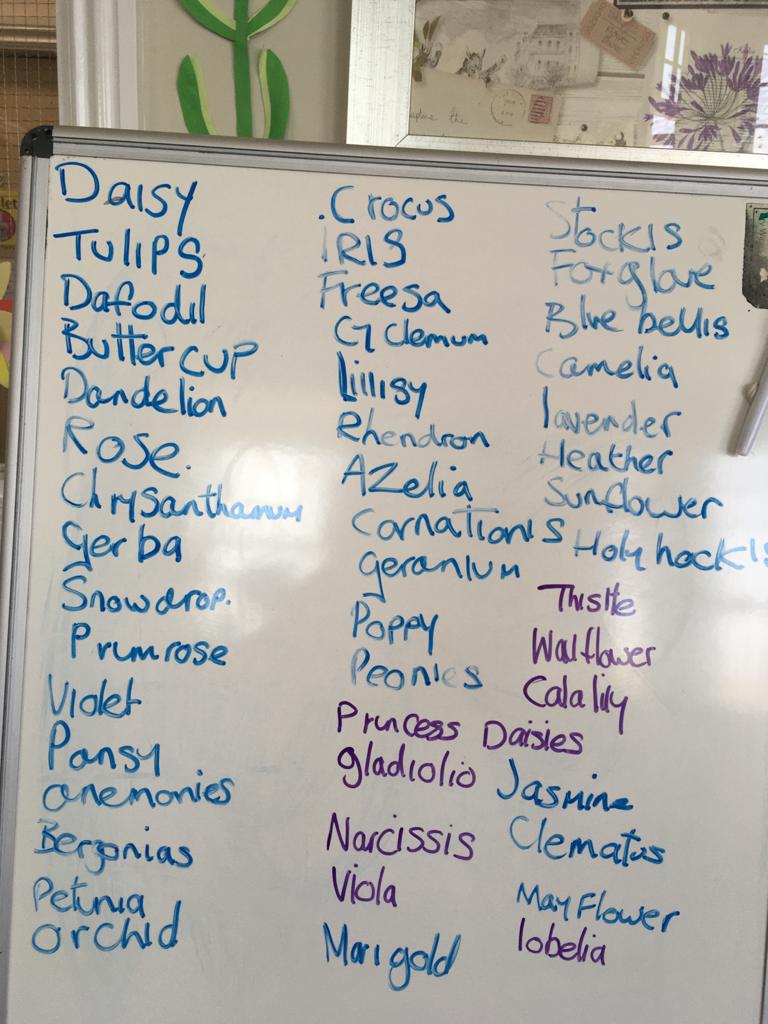 Daisy
Tulips
Dafodil
Butter cup
Dandelion
Rose.
Chrysanthamum
Gerba
Snowdrop.
Primrose
Violet
Pansy
anemonies
Bergonias
Petunia
orchid
.Crocus
IRIS
Freesa
Cyclemum
Lillisy
Rhendron
AZelia
Carnations
geranium
Poppy
Peonies
Princess Daisies
gladiolio
Narcissis
Viola
Marigold
Stockis
Foxglove
Blue bellis
Camelia
lavender
Heather
Sunflower
Holy hockis
Thislte
Wallflower
Calalily
Jasmine
Clematus
May Flower
lobelia